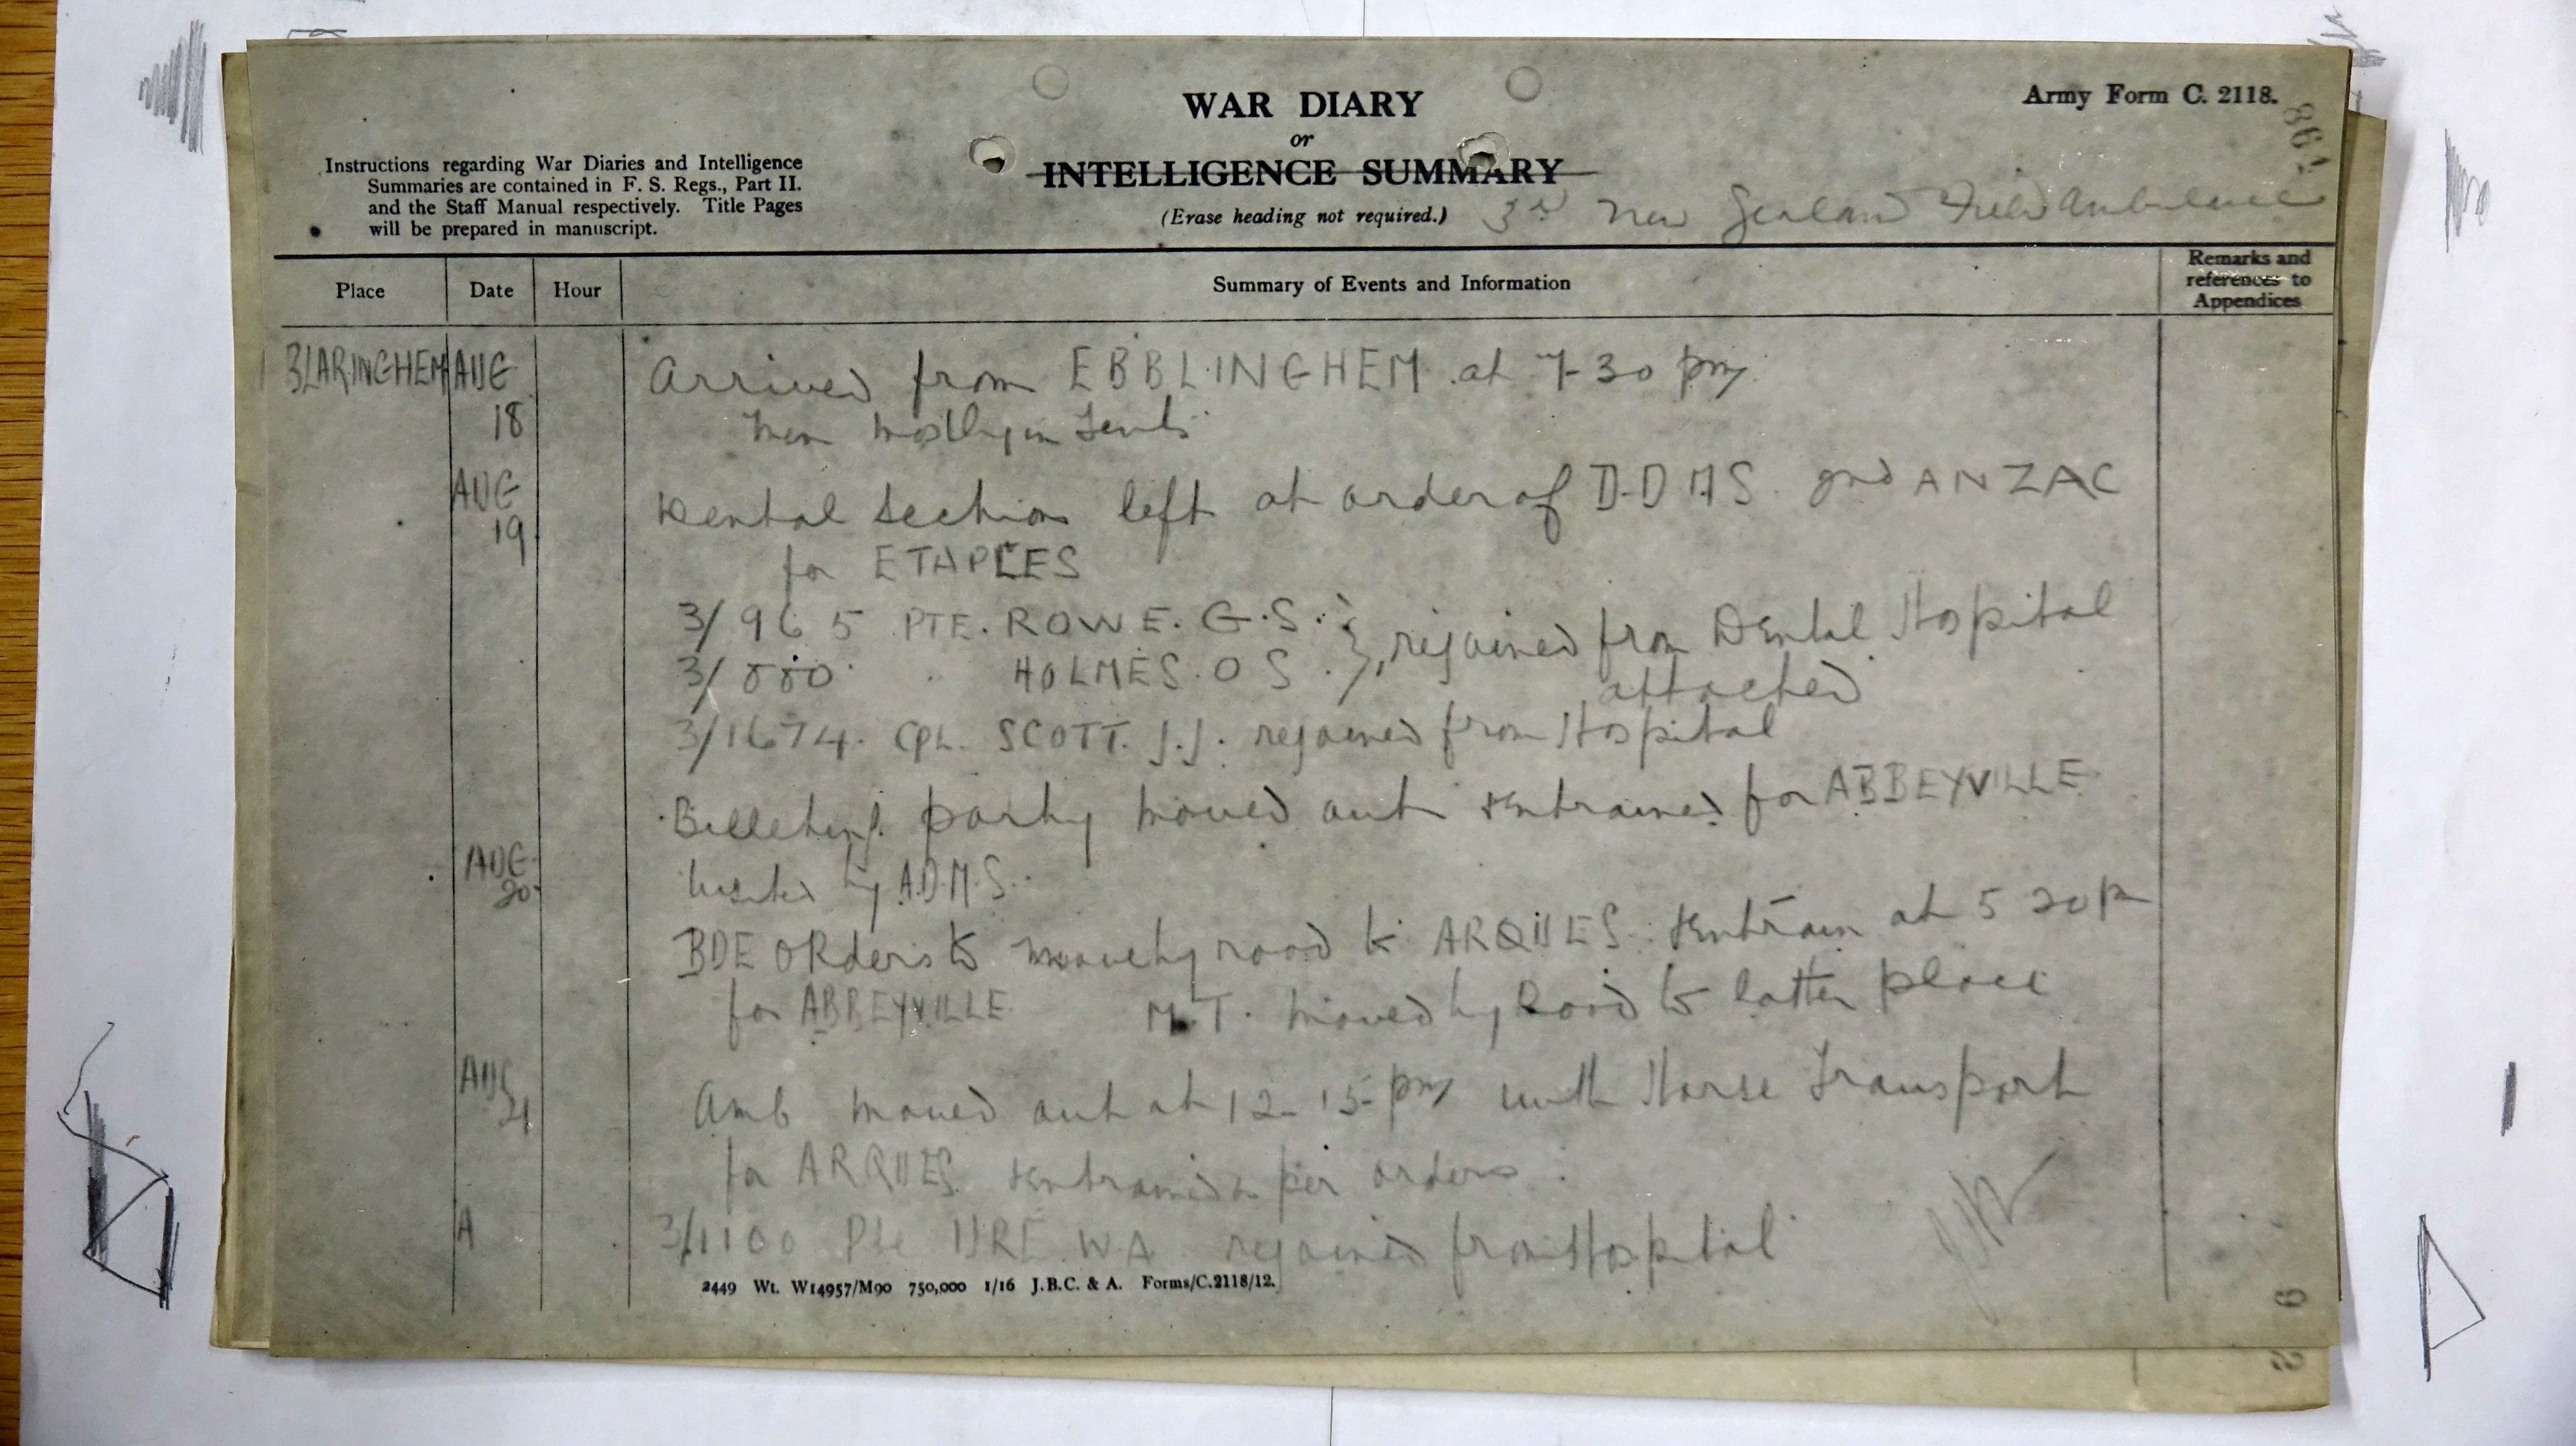 WAR DIARY
or
INTELLIGENCE SUMMARY
(Erase heading not required.)
Army Form C. 2118.
Instructions regarding War Diaries and Intelligence
Summaries are contained in F. S. Regs., Part II.
and the Staff Manual respectively. Title Pages
will be prepared in manuscript.
3rd New Zealand Field Ambulance
Place Date Hour Summary of Events and Information Remarks and references to Appendices
BLARINGHEM AUG 18 Arrived from EBBLINGHEM at 7-30 pm
Men mostly in Tents
AUG 19 Dental Section left at order of D.D.M.S. 2nd ANZAC
for ETAPLES
3/965 PTE. ROWE. G.S. } rejoined from Dental Hospital
3/880 " HOLMES. O S. } attached
3/1674. CPL. SCOTT. J.J. rejoined from Hospital
Billeting party moved out & entrained for ABBEYVILLE
AUG 20 Visited by A.D.M.S.
BDE ORders to move by road to ARQUES & entrain at 5 20 p
for ABBEYVILLE M.T. moved by Road to latter place
AUG 21 Amb moved out at 12-15 pm with Horse Transport
for ARQUES & entrained as per orders.
A 3/1100 Pte URE W A rejoined from Hospital
2449 Wt. W14957/M90 750,000 1/16 J.B.C. & A. Forms/C.2118/12.